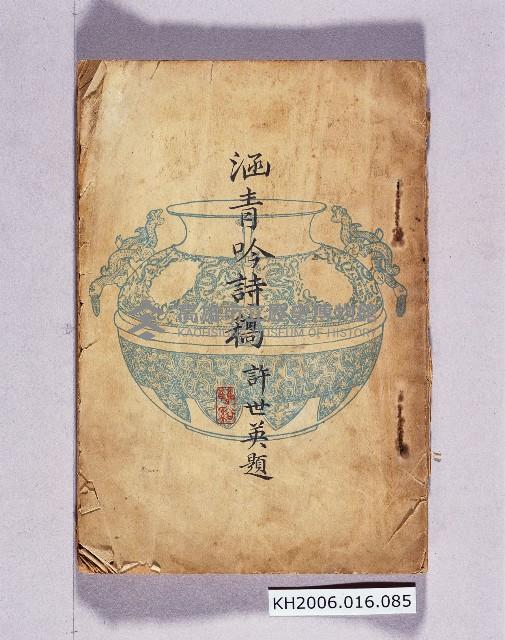 涵青吟詩稿
許世英題
高雄市立歷史博物館
KAOHSIUNG MUSEUM OF HISTORY
KH2006.016.085